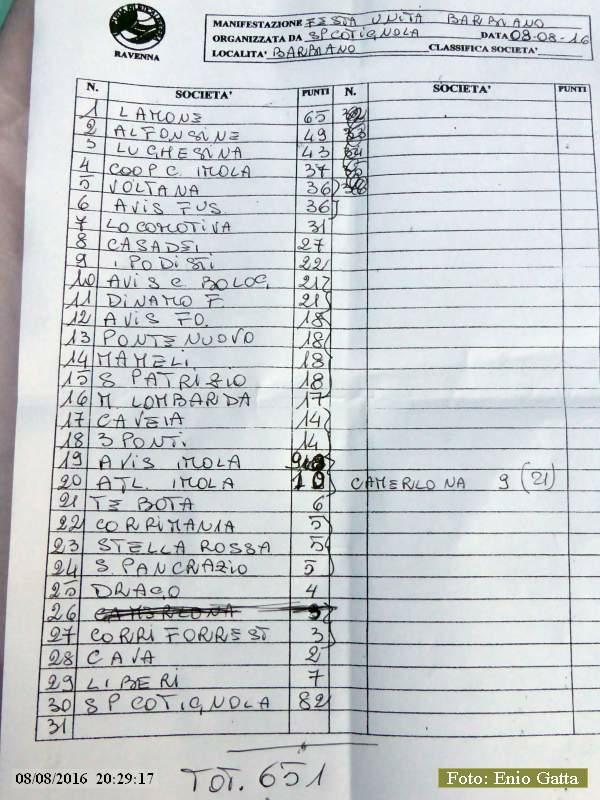 RAVENNA
MANIFESTAZIONE FESTA UNITÀ BARBIANO
ORGANIZZATA DA SP COTIGNOLA DATA 08-08-16
LOCALITA' BARBIANO CLASSIFICA SOCIETA'
N. SOCIETA' PUNTI N. SOCIETA' PUNTI
1 LAMONE 65
2 ALFONSINE 49
3 LUGHESINA 43
4 COOP C. IMOLA 37
5 VOLTANA 36
6 AVIS FUS. 36
7 LOCOMOTIVA 31
8 CASADEI 27
9 I PODISTI 22
10 AVIS C BOLOG. 21
11 DINAMO F. 21
12 AVIS FO. 18
13 PONTE NUOVO 18
14 MAMELI 18
15 S PATRIZIO 18
16 M. LOMBARDA 17
17 CAVEIA 14
18 3 PONTI 14
19 AVIS IMOLA
20 ATL. IMOLA 10 CAMERLONA 9 (21)
21 TE BOTA 6
22 CORRIMANIA 5
23 STELLA ROSSA 5
24 S. PANCRAZIO 5
25 DRAGO 4
26 CAMERLONA
27 CORRI FORREST 3
28 CAVA 2
29 LIBERI 7
30 SP COTIGNOLA 82
31
TOT. 651
08/08/2016 20:29:17
Foto: Enio Gatta